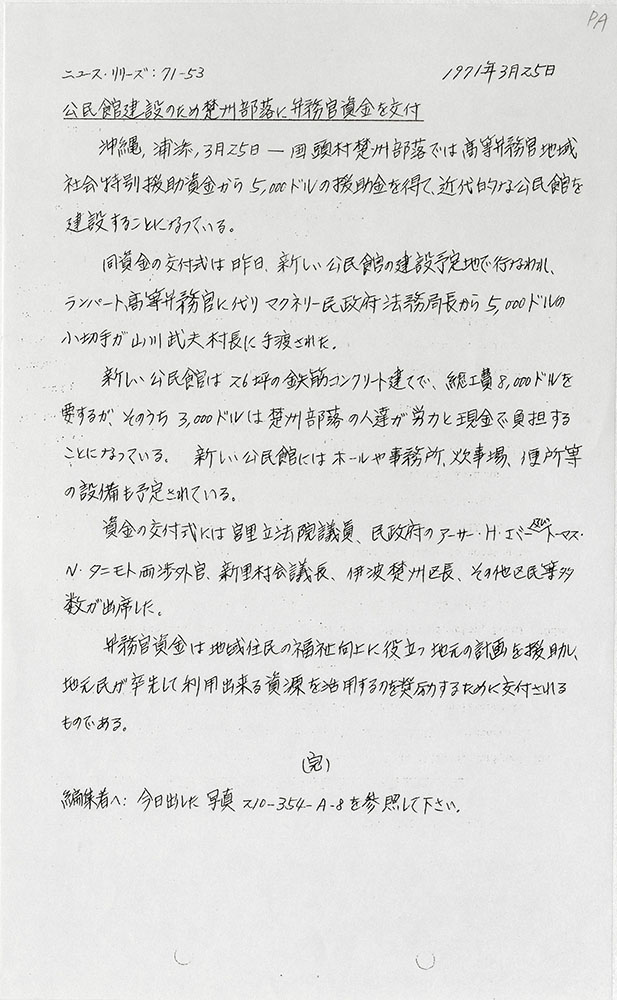 PA
ニュース・リリーズ:71-53 1971年3月25日
公民館建設のため楚州部落に弁務官資金を交付
沖縄,浦添,3月25日 — 国頭村楚州部落では高等弁務官地域
社会特別援助資金から5,000ドルの援助金を得て、近代的な公民館を
建設することになっている。
同資金の交付式は昨日、新しい公民館の建設予定地で行なわれ、
ランパート高等弁務官に代りマクネリー民政府法務局長から5,000ドルの
小切手が山川武夫村長に手渡された.
新しい公民館は26坪の鉄筋コンクリート建てで、総工費8,000ドルを
要するが、そのうち3,000ドルは楚州部落の人達が労力と現金で負担する
ことになっている。 新しい公民館にはホールや事務所、炊事場、便所等
の設備も予定されている。
資金の交付式には宮里立法院議員、民政府のアーサー・H・エビー及びトーマス・
N・タニモト両渉外官、新里村会議長、伊波楚州区長、その他区民等多
数が出席した。
弁務官資金は地域住民の福祉向上に役立つ地元の計画を援助し、
地元民が卒先して利用出来る資源を活用するのを奨励するために交付される
ものである。
(完)
編集者へ: 今日出した写真210-354-A-8を参照して下さい.